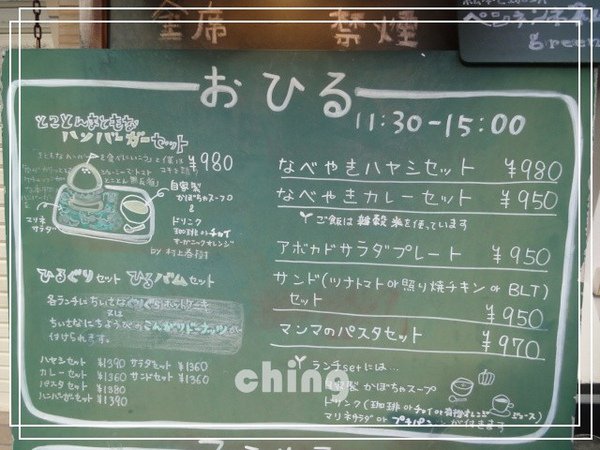 全席 禁煙
green
おひる
11:30-15:00
とことんまともな
ハンバーガーセット
¥980
自家製
かぼちゃスープ
&
ドリンク
珈琲 or チャイ
オーガニックオレンジ
マリネ
サラダ
by 村上春樹
ひるぐりセット ひるバムセット
各ランチにちいさなぐりぐらホットケーキ
又は
ちいさなにちようびのこんがりドーナッツが
付けられます。
ハヤシセット ¥1390 サラダセット ¥1360
カレーセット ¥1360 サンドセット ¥1360
パスタセット ¥1380
ハンバーガーセット ¥1390
なべやきハヤシセット ¥980
なべやきカレーセット ¥950
ご飯は雑穀米を使っています
アボカドサラダプレート ¥950
サンド(ツナトマト or 照り焼チキン or BLT)
セット ¥950
マンマのパスタセット ¥970
ランチsetには...
自家製 かぼちゃスープ
ドリンク(珈琲 or チャイ or
マリネサラダ or プチパン が付きます
ching